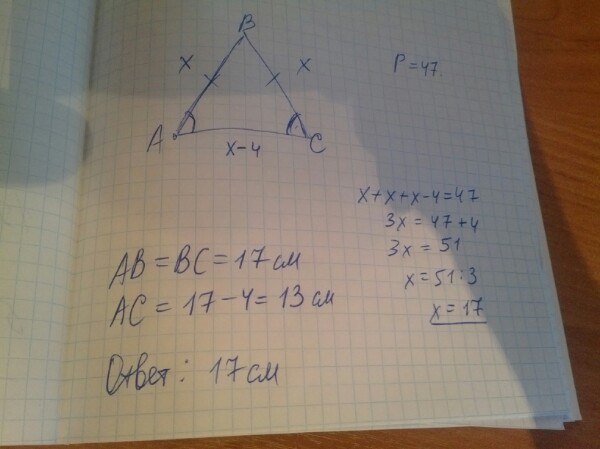 B
x x
P=47.
A C
x-4
x+x+x-4=47
3x=47+4
3x=51
x=51:3
x=17
AB=BC=17см
AC=17-4=13см
Ответ: 17см